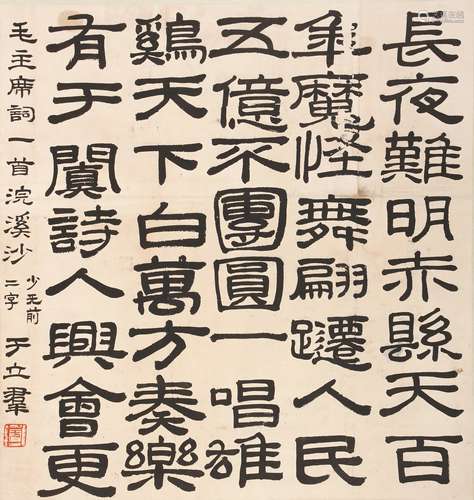 長夜難明赤縣天百
年魔怪舞翩躚人民
五億不團圓一唱雄
鷄天下白萬方奏樂
有于闐詩人興會更
毛主席詞一首浣溪沙 少无前
二字 于立羣